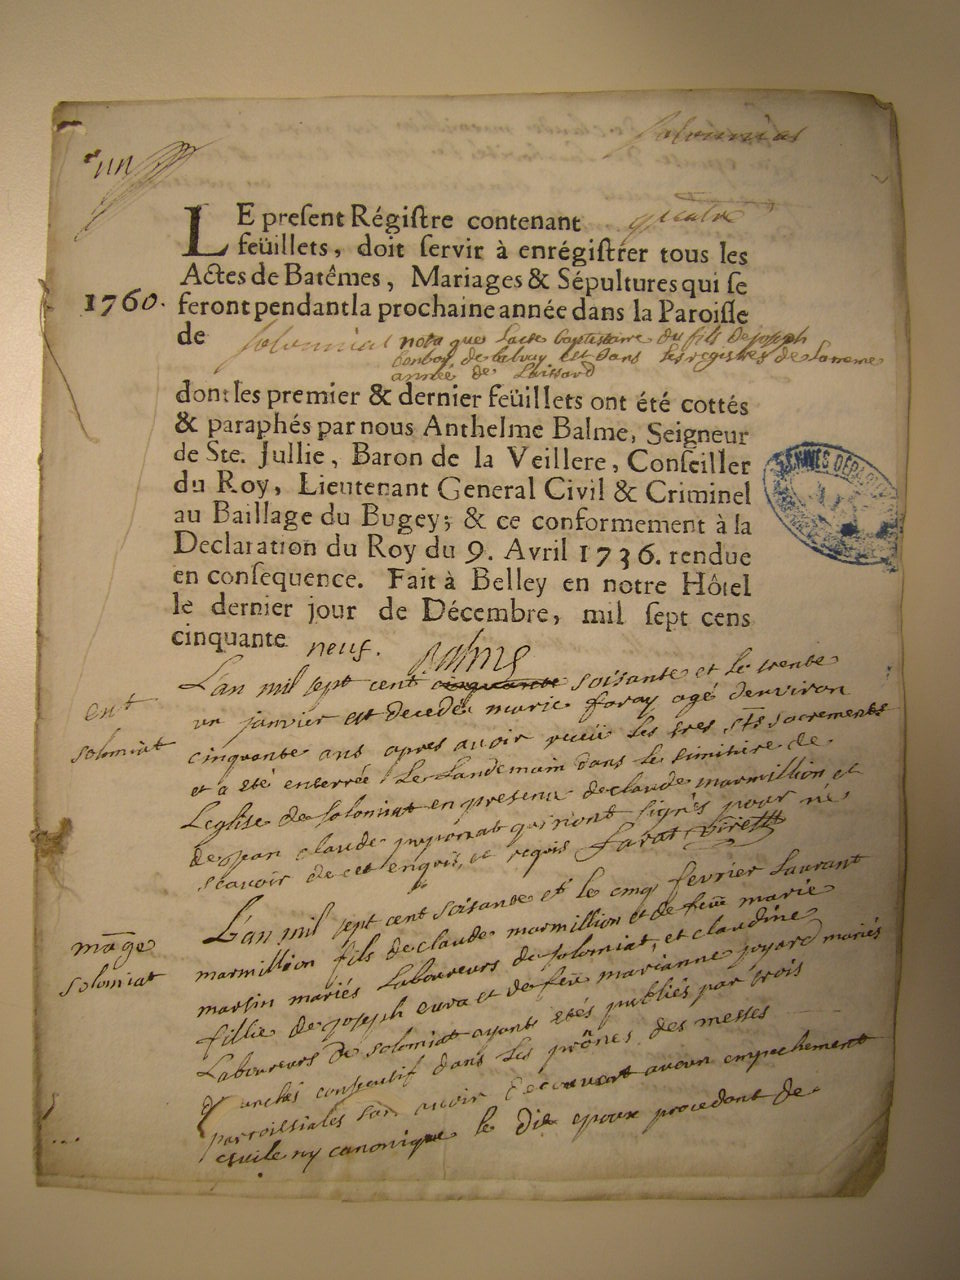 un
Solomiat
LE preſent Régiſtre contenant quatre
feüillets, doit ſervir à enrégiſtrer tous les
Actes de Batêmes, Mariages & Sépultures qui ſe
1760. feront pendant la prochaine année dans la Paroiſſe
de Solomiat nota que Lacte baptistaire du fils de joseph
de est dans les registres de La meme
année de
dont les premier & dernier feüillets ont été cottés
& paraphés par nous Anthelme Balme, Seigneur
de Ste. Jullie, Baron de la Veillere, Conſeiller
du Roy, Lieutenant General Civil & Criminel
au Baillage du Bugey; & ce conformement à la
Declaration du Roy du 9. Avril 1736. rendue
en conſequence. Fait à Belley en notre Hôtel
le dernier jour de Décembre, mil ſept cens
cinquante neuf. Balme
L'an mil sept cent cinquante soisante et le trente
ent
un janvier est decedée marie favay agé denviron
solomiat
cinquante ans apres avoir receü les tres sts sacrements
et a été enterrée Le Landemain dans le simitiere de
Leglise de solomiat en presence de claude marmillion et
de jean claude qui n'ont signés pour ne
scavoir de ce enquis, et requis
L'an mil sept cent soisante et le cinq fevrier Laurant
mage
marmillion fils de claude marmillion et de feüe marie
solomiat
marsin mariés Laboureurs de solomiat, et claudine
fillie de joseph cura et de feüe marianne joyard mariés
Laboureurs de solomiat ayants etés publiés par trois
consecutif dans les prônes des messes
parroissiales san avoir decouvert aucun empechement
civile ny canonique le dit epoux procedant de